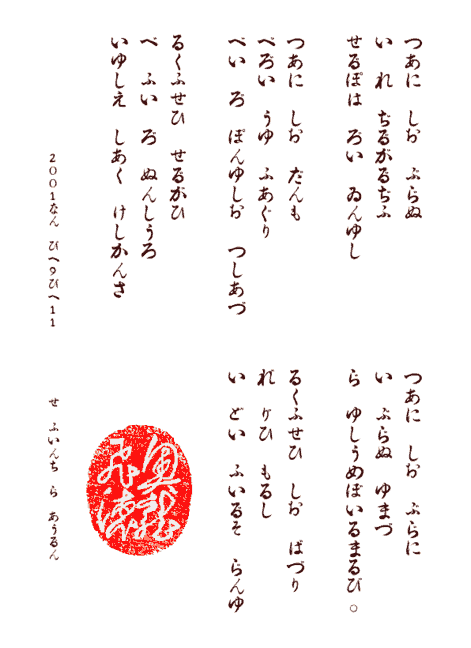 つあに しお ぶらぬ
い れ ぢるがるちふ
せるぽは ろい ゐんゆし
つあに しお だんも
べろい うゆ ふあぐり
べい ろ ぽんゆしお つしあづ
るくふせひ せるがひ
べ ふい ろ ぬんしうろ
いゆしえ しあく けしかんさ
2001なん びへ9びへ11
つあに しお ぶらに
い ぶらぬ ゆまづ
ら ゆしうめぽいるまるび。
るくふせひ しお ばづり
れ りひ もるし
い どい ふいるそ らんゆ
せ ふいんち ら あうるん